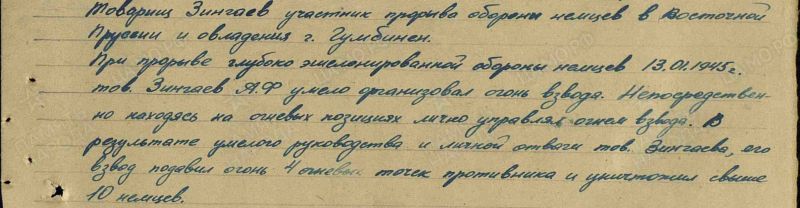 Товарищ Зингаев участник прорыва обороны немцев в Восточной
Пруссии и овладения г. Гумбинен.
При прорыве глубоко эшелонированной обороны немцев 13.01.1945г.
тов. Зингаев А.Ф умело организовал огонь взвода. Непосредствен-
но находясь на огневых позициях лично управлял огнем взвода. В
результате умелого руководства и личной отваги тов. Зингаева, его
взвод подавил огонь 4 огневых точек противника и уничтожил свыше
10 немцев.